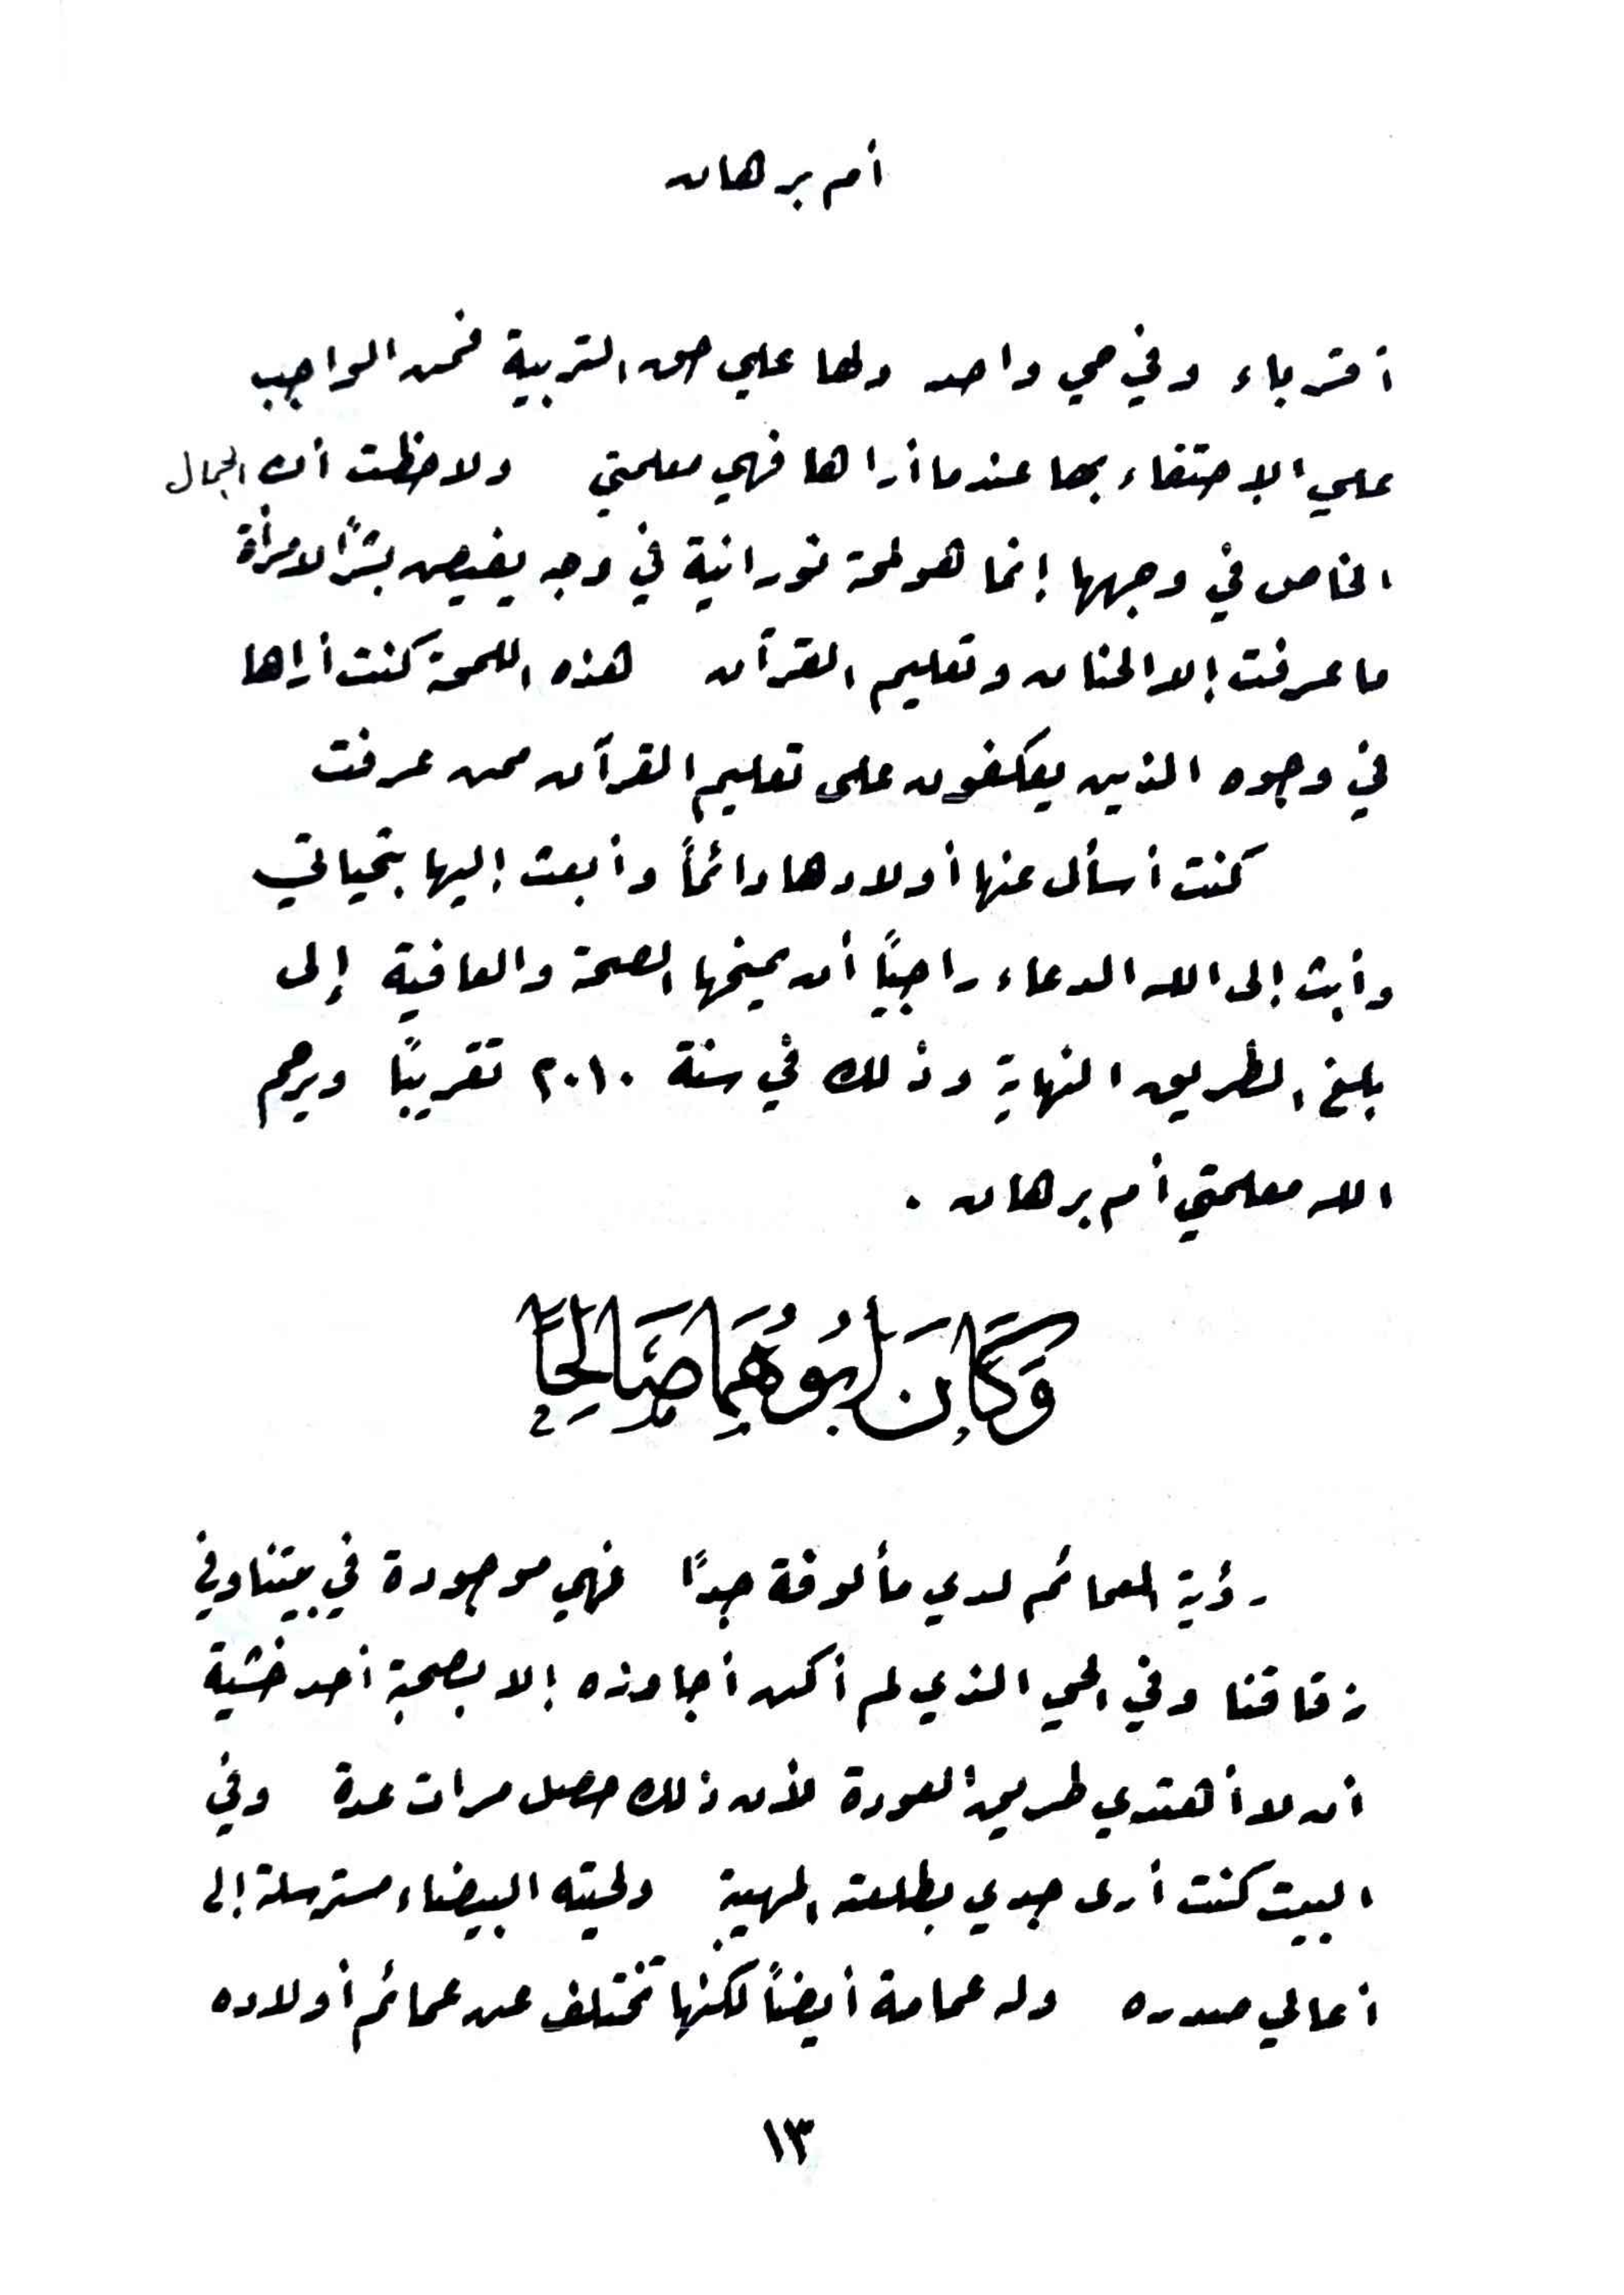 أم برهان
أقرباء وفي حي واحد ولها علي حق التربية فمن الواجب
علي الاحتفاء بها عندما أراها فهي معلمتي ولاحظت أن الجمال
الخاص في وجهها إنما هو لمحة نورانية في وجه يفيض بشرًا لامرأة
ما عرفت إلا الحنان وتعليم القرآن هذه اللمحة كنت أراها
في وجوه الذين يعكفون على تعليم القرآن ممن عرفت
كنت أسأل عنها أولادها دائمًا وأبعث إليها بتحياتي
وأبث إلى الله الدعاء راجيًا أن يمنحها الصحة والعافية إلى
بلغ الطريق النهاية وذلك في سنة ٢٠١٠ تقريبًا ويرحم
الله معلمتي أم برهان .
وَكَانَ أَبُوهُمَا صَالِحًا
رؤية العمائم لدي مألوفة جدًا فهي موجودة في بيتنا وفي
زقاقنا وفي الحي الذي لم أكن أجاوزه إلا بصحبة أحد خشية
أن لا أهتدي طريق العودة لأن ذلك حصل مرات عدة وفي
البيت كنت أرى جدي بطلعته المهيبة ولحيته البيضاء مسترسلة إلى
أعالي صدره وله عمامة أيضًا لكنها تختلف عن عمائم أولاده
١٣